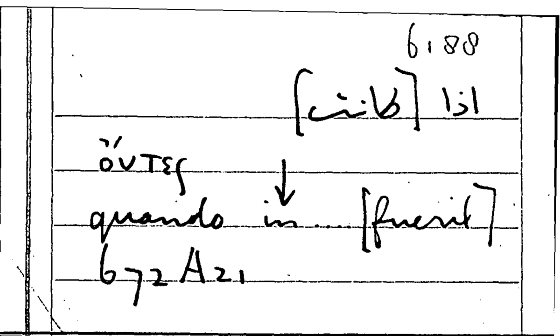 6.88
اذا [كانت]
ὄντες ↓
quando in ... [fuerit]
672 A21